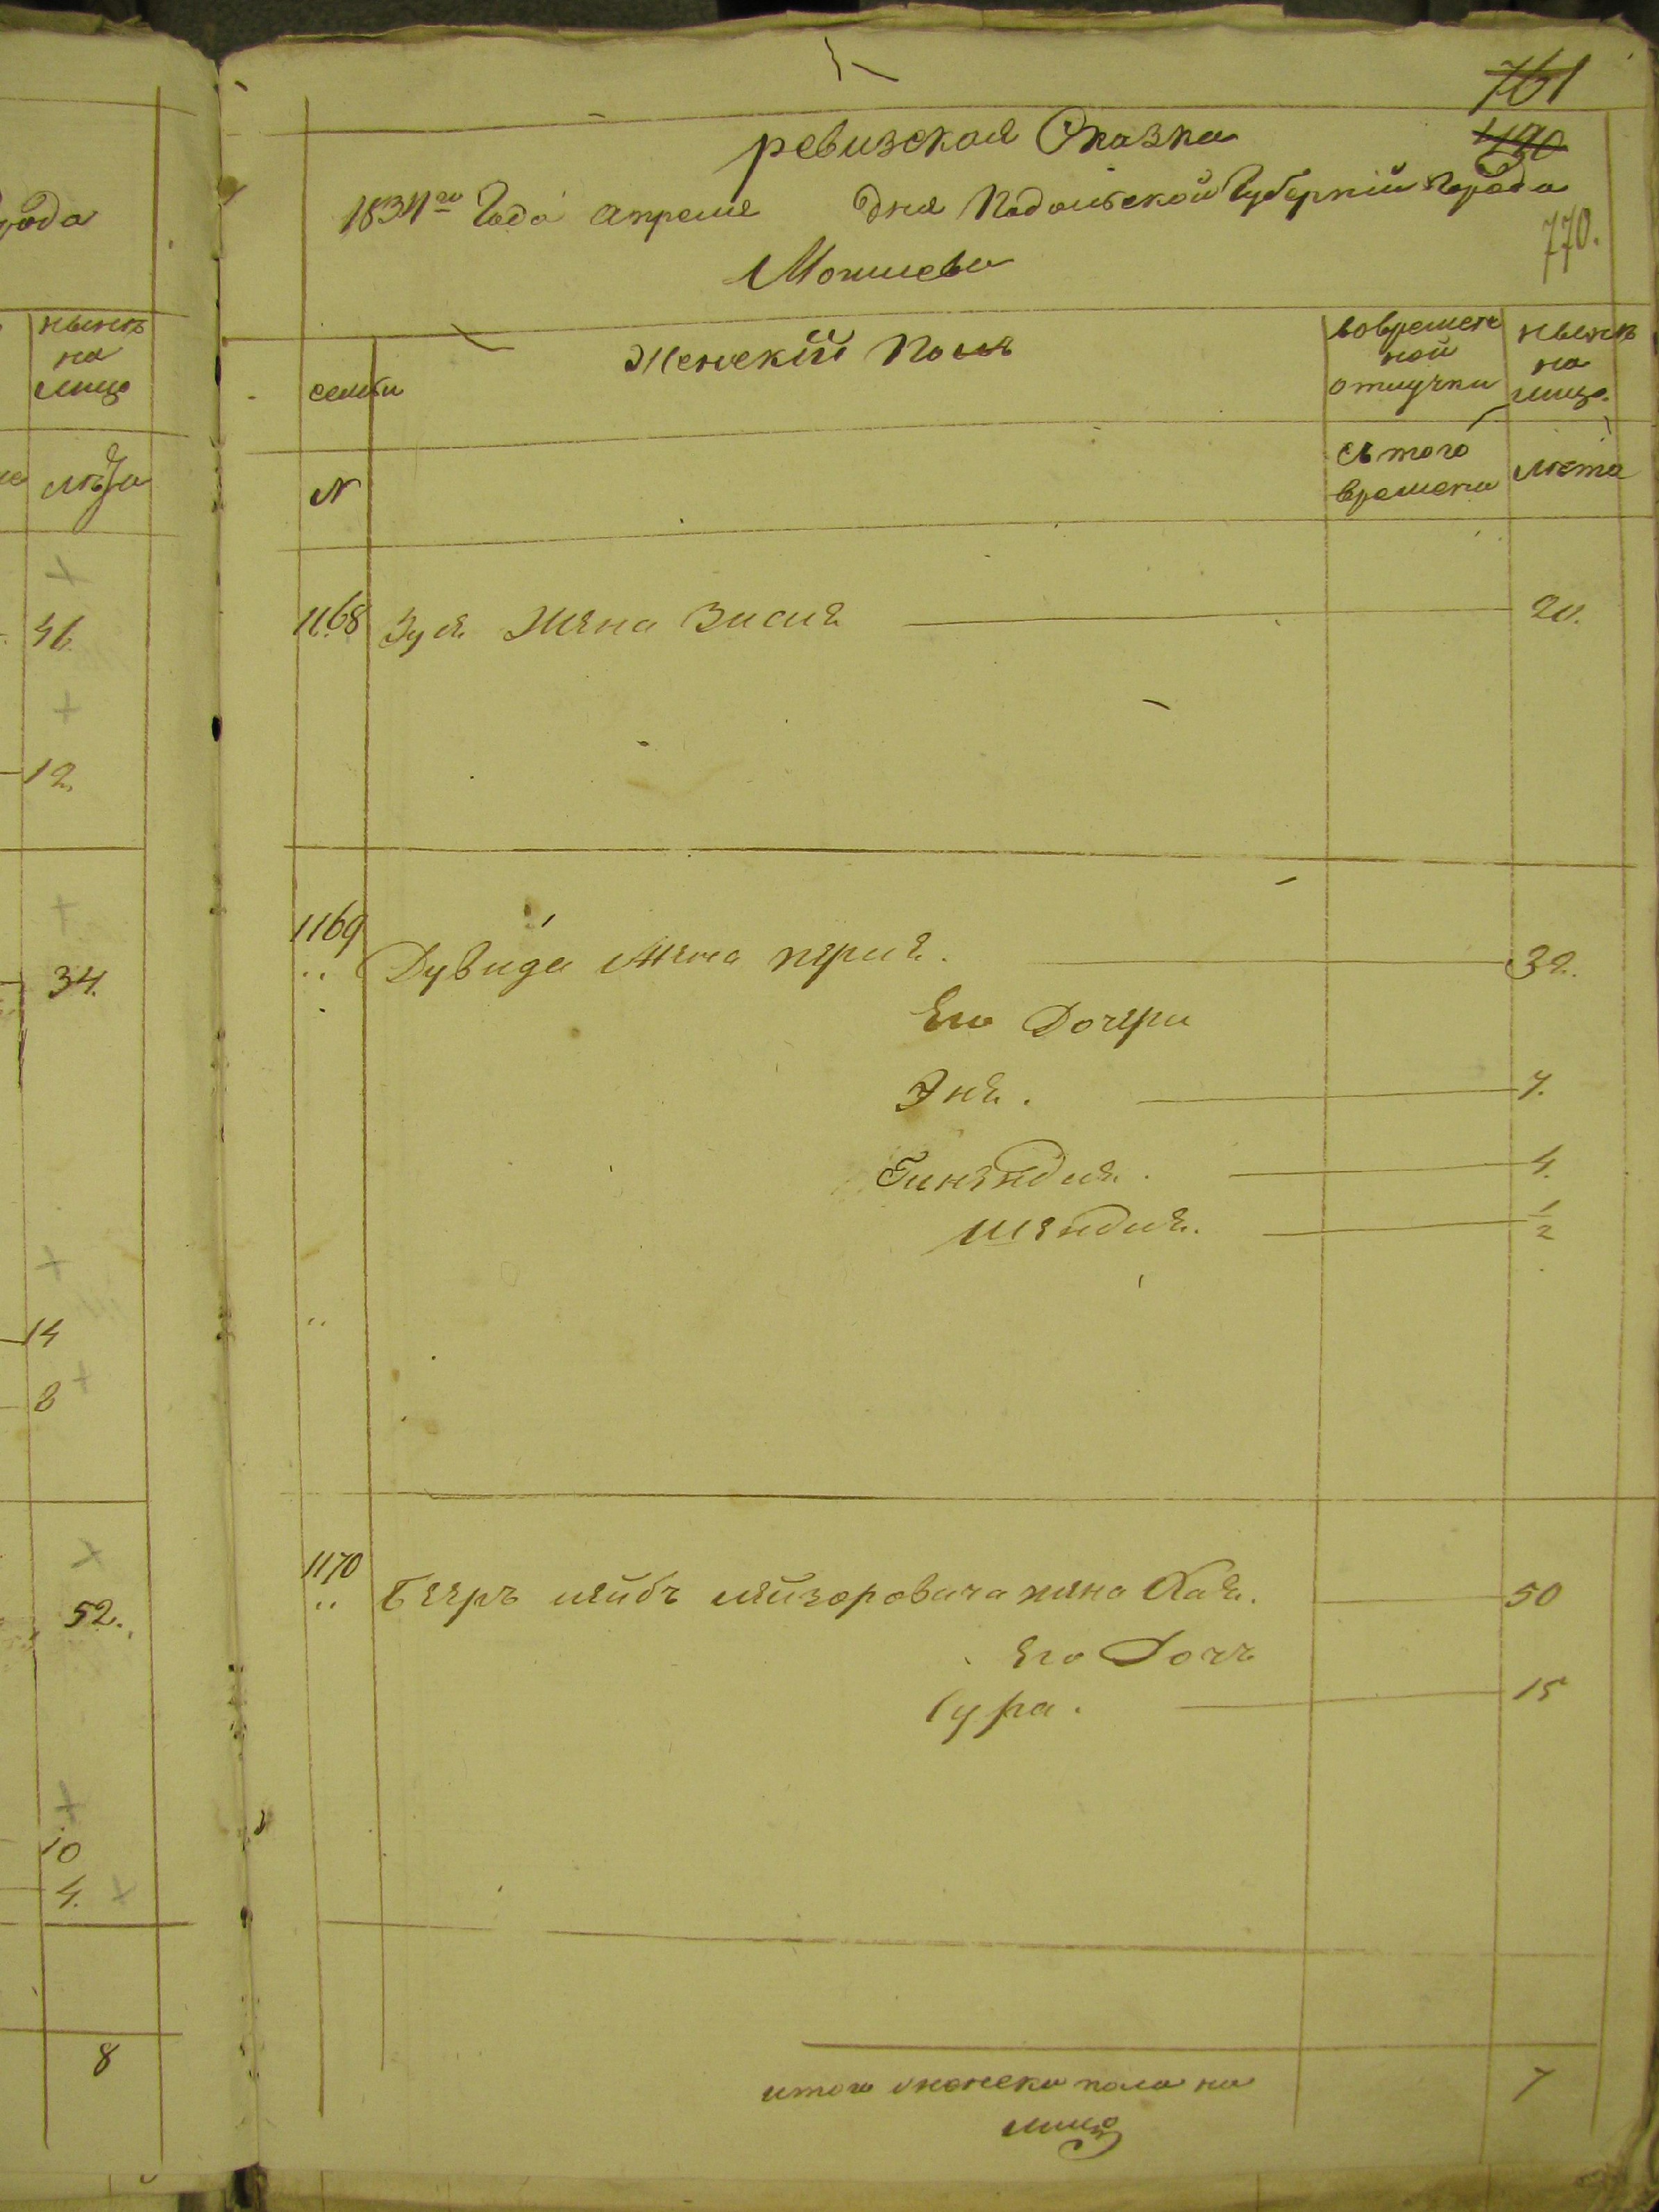 рода
нынѣ
на
лицо
лѣта
46
12.
34.
14
8
52.
10
4.
8
761
770.
ревизская Сказка
1834го Года апреля дня Подольской Губерніи города
Могилева
семьи
Женскій Полъ
вовремен
ной
отлучки
нынѣ
на
лицо.
№
съ того
времени
лѣта
1168 Зуся Жена Зисля 20.
1169 Дувида Жена перля. 32.
Его Дочери
Эня. 7.
Гинендля. 4.
шендля. 1/2
1170 Бееръ лейбъ лейзоровича жена Хая. 50
Его Дочь
Сура. 15
итого женска пола на
лицо 7